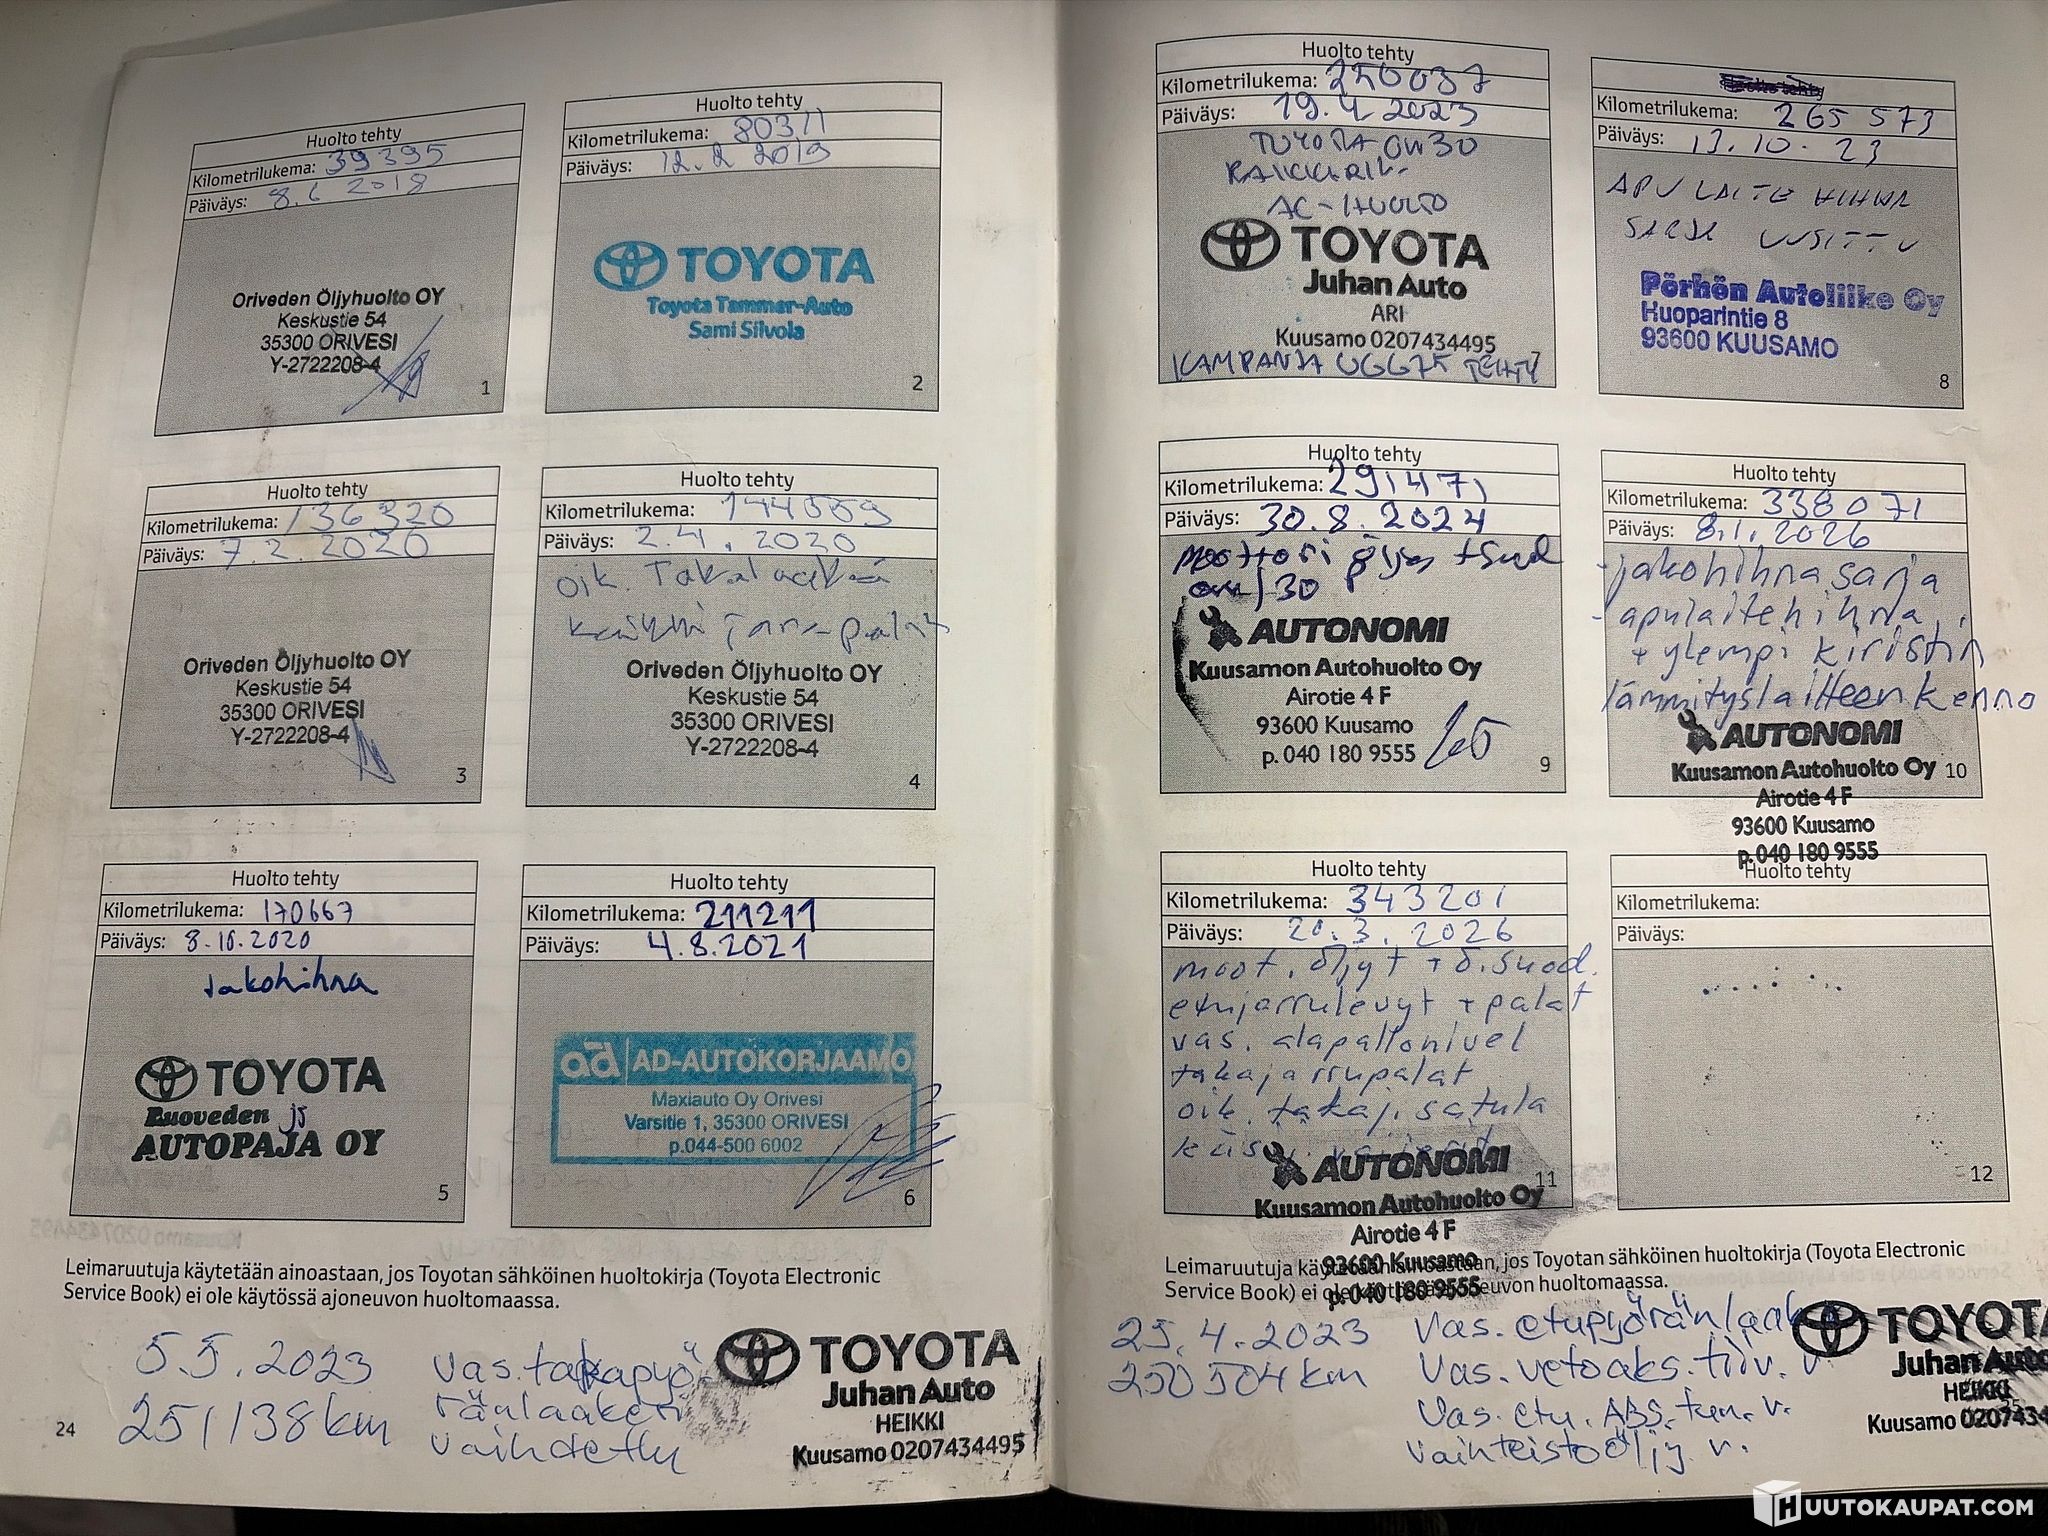 Huolto tehty
Kilometrilukema: 39395
Päiväys: 8.6 2018
Oriveden Öljyhuolto OY
Keskustie 54
35300 ORIVESI
Y-2722208-4
1
Huolto tehty
Kilometrilukema: 80311
Päiväys: 12.2 2019
TOYOTA
Toyota Tammer-Auto
Sami Silvola
2
Huolto tehty
Kilometrilukema: 136320
Päiväys: 7.2.2020
Oriveden Öljyhuolto OY
Keskustie 54
35300 ORIVESI
Y-2722208-4
3
Huolto tehty
Kilometrilukema: 144559
Päiväys: 2.4.2020
oik. Takalaakeri
jarrupalat
Oriveden Öljyhuolto OY
Keskustie 54
35300 ORIVESI
Y-2722208-4
4
Huolto tehty
Kilometrilukema: 170667
Päiväys: 8.10.2020
Jakohihna
TOYOTA
Ruoveden js
AUTOPAJA OY
5
Huolto tehty
Kilometrilukema: 211211
Päiväys: 4.8.2021
ad AD-AUTOKORJAAMO
Maxiauto Oy Orivesi
Varsitie 1, 35300 ORIVESI
p.044-500 6002
6
Leimaruutuja käytetään ainoastaan, jos Toyotan sähköinen huoltokirja (Toyota Electronic
Service Book) ei ole käytössä ajoneuvon huoltomaassa.
5.5.2023
251138 km
vas. takapyö-
ränlaakeri
vaihdettu
TOYOTA
Juhan Auto
HEIKKI
Kuusamo 0207434495
24
Huolto tehty
Kilometrilukema: 250037
Päiväys: 19.4.2023
TOYOTA 0W30
RAIKKARIN
AC-HUOLTO
TOYOTA
Juhan Auto
ARI
Kuusamo 0207434495
KAMPANJA UGG75 TEHTY
7
Huolto tehty
Kilometrilukema: 265 573
Päiväys: 13.10.23
APULAITE HIHNA
SARJA UUSITTU
Pörhön Autoliike Oy
Huoparintie 8
93600 KUUSAMO
8
Huolto tehty
Kilometrilukema: 291471
Päiväys: 30.8.2024
moottori öljy + suod
0W/30
AUTONOMI
Kuusamon Autohuolto Oy
Airotie 4 F
93600 Kuusamo
p. 040 180 9555
9
Huolto tehty
Kilometrilukema: 338071
Päiväys: 8.1.2026
-jakohihnasarja
-apulaitehihna
+ ylempi kiristin
lämmityslaitteen kenno
AUTONOMI
Kuusamon Autohuolto Oy
10
Airotie 4 F
93600 Kuusamo
p. 040 180 9555
Huolto tehty
Kilometrilukema: 343201
Päiväys: 20.3.2026
moot. öljyt + ö.suod.
etujarrulevyt + palat
vas. alapallonivel
takajarrupalat
oik. takaj. satula
AUTONOMI
11
Kuusamon Autohuolto Oy
Airotie 4 F
93600 Kuusamo
p. 040 180 9555
Huolto tehty
Kilometrilukema:
Päiväys:
12
Leimaruutuja käytetään ainoastaan, jos Toyotan sähköinen huoltokirja (Toyota Electronic
Service Book) ei ole käytössä ajoneuvon huoltomaassa.
25.4.2023
250504 km
Vas. etupyöränlaak.
Vas. vetoaks. tiiv. v.
Vas. etu. ABS. tun. v.
vaihteistoöljy. v.
TOYOTA
Juhan Auto
HEIKKI
Kuusamo 0207434
HUUTOKAUPAT.COM